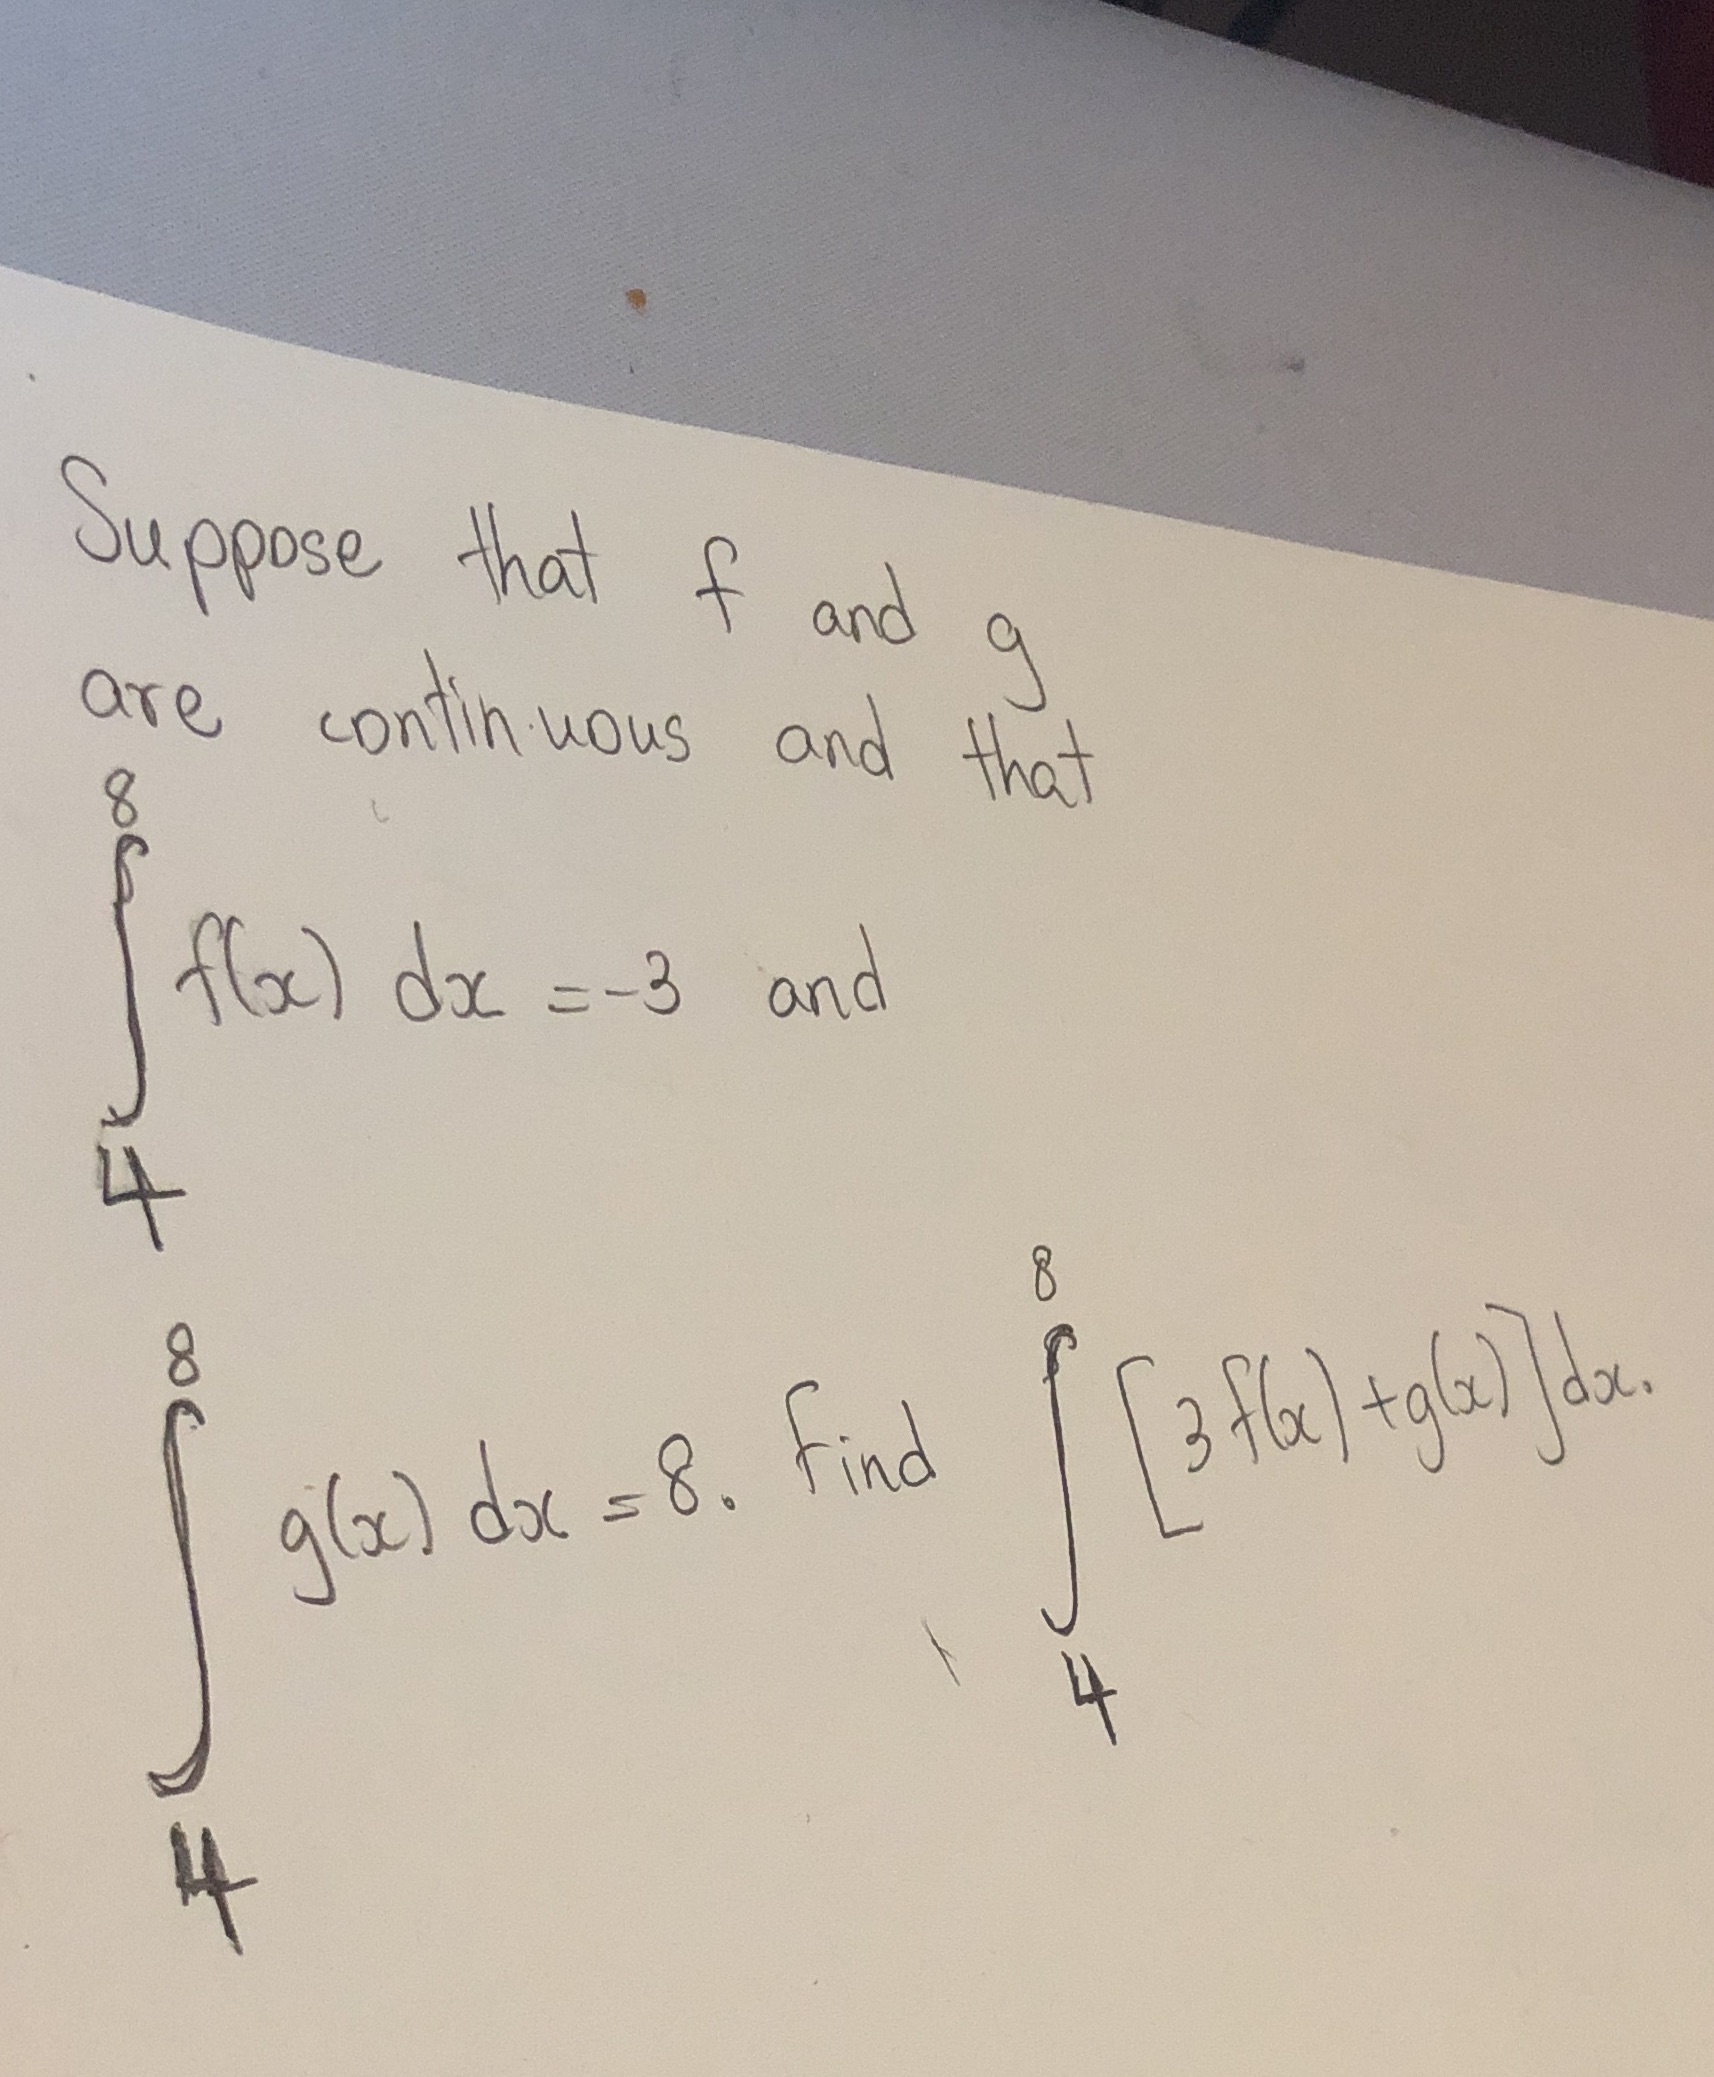 Suppose that f and g
are continuous and that
∫₄⁸ f(x) dx = -3 and
∫₄⁸ g(x) dx = 8. Find ∫₄⁸ [3f(x) + g(x)] dx.